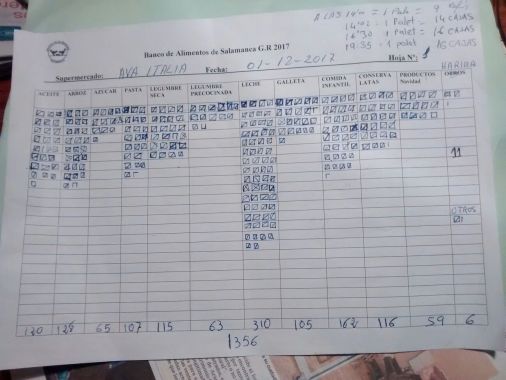 A LAS 14'00 = 1 Palet = 9
14'02 : 1 Palet = 14 CAJAS
16'30 1 Palet = 16 CAJAS
19:35 - 1 palet CAJAS
Banco de Alimentos de Salamanca G.R 2017
Hoja Nº:
Supermercado: AVA ITALIA Fecha: 01-12-2017
HARINA
ACEITE ARROZ AZUCAR PASTA LEGUMBRE SECA LEGUMBRE PRECOCINADA LECHE GALLETA COMIDA INFANTIL CONSERVA LATAS PRODUCTOS Navidad OTROS
11
OTROS
120 128 65 107 115 63 310 105 162 116 59 6
1356